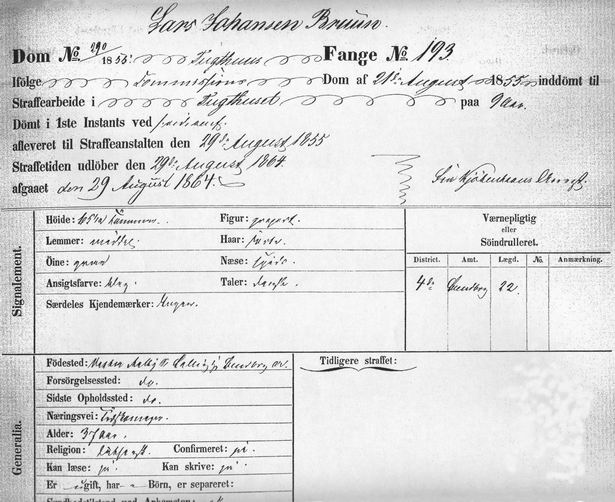 Lars Johansen Bruun.
Dom № 290/1855: Tugthuus Fange № 193.
Ifölge Commissions Dom af 21de August 1855 inddömt til
Straffearbeide i Tugthuset paa 9 Aar.
Dömt i 1ste Instants ved
afleveret til Straffeanstalten den 29de August 1855
Straffetiden udlöber den 29de August 1864
afgaaet den 29 August 1864. Kjöbenhavns Amt.
Signalement.
Höide: Figur:
Lemmer: middel Haar:
Öine: graa Næse:
Ansigtsfarve: bleg Taler: dansk
Særdeles Kjendemærker: Ingen.
Værnepligtig
eller
Söindrulleret.
District. Amt. Lægd. №. Anmærkning.
4de 22
Generalia.
Födested: Vester
Forsörgelsessted: do.
Sidste Opholdssted: do.
Næringsvei:
Alder: 37 Aar.
Religion: luthersk. Confirmeret: ja
Kan læse: ja Kan skrive: ja
Er ugift, har Börn, er separeret:
Tidligere straffet: